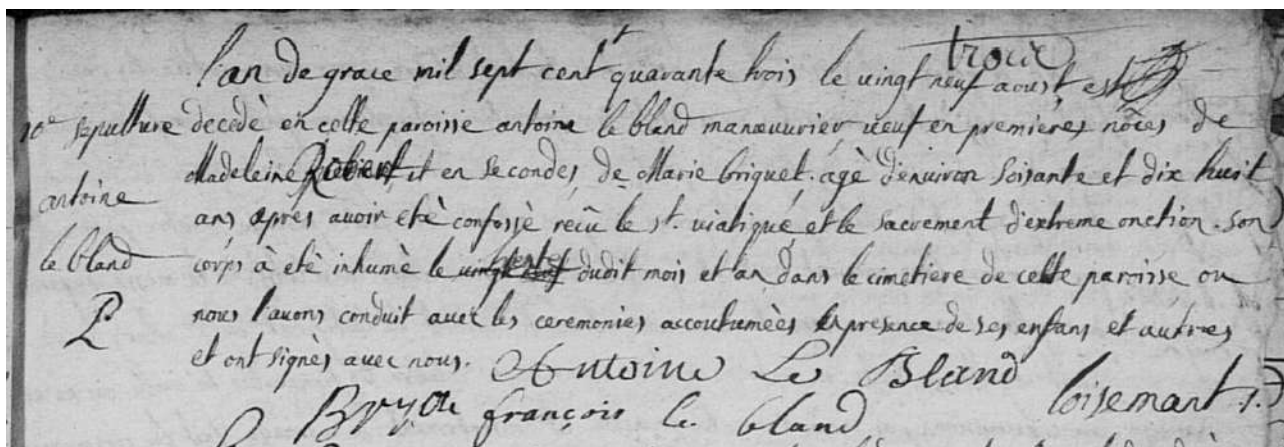 l'an de grace mil sept cent quarante trois le vingt neuf aoust est
10e sepulture decedè en cette paroisse antoine le bland manœuvrier veuf en premieres nôces de
antoine Madeleine Robert et en secondes de Marie briquet. agè d'environ soisante et dix huit
ans après avoir etè confessè reçû le st. viatique et le sacrement d'extreme onction. son
le bland corps à etè inhumè le trente dudit mois et an dans le cimetiere de cette paroisse ou
nous l'avons conduit avec les ceremonies accoutumèes en presence de ses enfans et autres
et ont signès avec nous. Antoine Le Bland
françois le bland